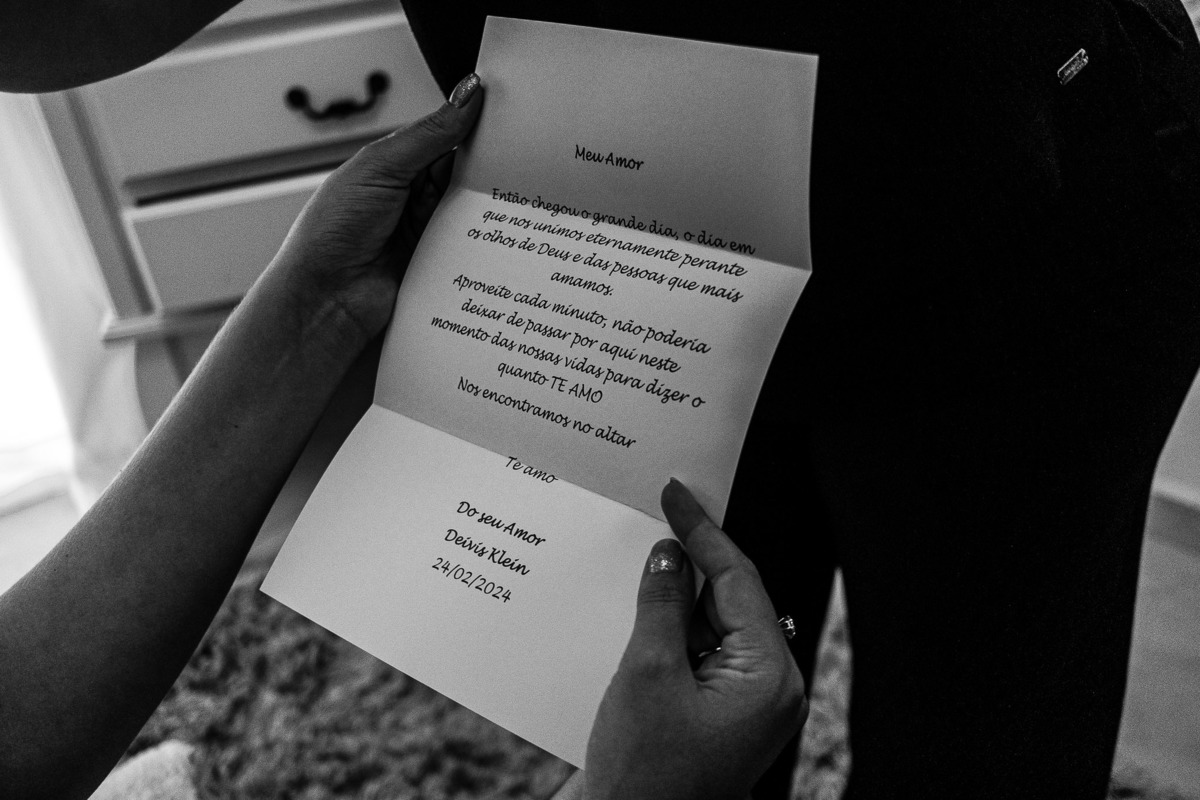 Meu Amor
Então chegou o grande dia, o dia em
que nos unimos eternamente perante
os olhos de Deus e das pessoas que mais
amamos.
Aproveite cada minuto, não poderia
deixar de passar por aqui neste
momento das nossas vidas para dizer o
quanto TE AMO
Nos encontramos no altar
Te amo
Do seu Amor
Deivis Klein
24/02/2024